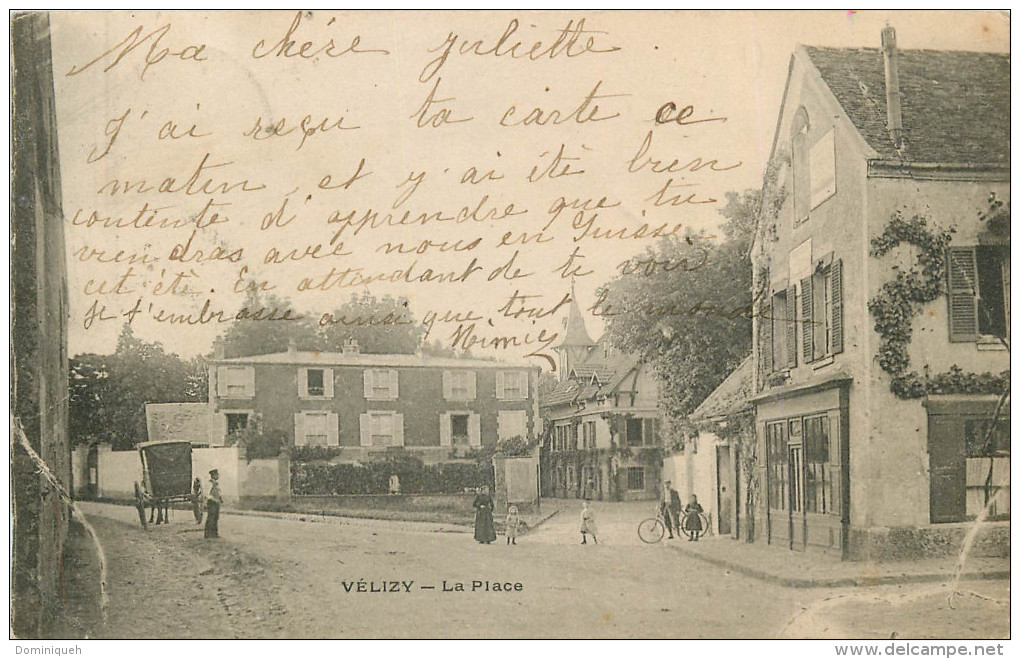 Ma chère Juliette
J'ai reçu ta carte ce
matin, et j'ai été bien
contente d'apprendre que tu
viendras avec nous en Suisse
cet été. En attendant de te voir
je t'embrasse ainsi que tout le monde.
Mimi
VÉLIZY – La Place
Dominiqueh
www.delcampe.net